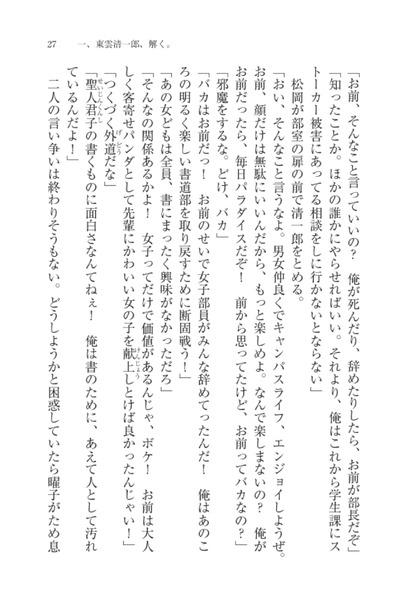 27　一、東雲清一郎、解く。
「お前、そんなこと言っていいの？　俺が死んだり、辞めたりしたら、お前が部長だぞ」
「知ったことか。ほかの誰かにやらせればいい。それより、俺はこれから学生課にス
トーカー被害にあってる相談をしに行かないとならない」
松岡が部室の扉の前で清一郎をとめる。
「おい、そんなこと言うなよ。男女仲良くでキャンパスライフ、エンジョイしようぜ。
お前、顔だけは無駄にいいんだから、もっと楽しめよ。なんで楽しまないの？　俺が
お前だったら、毎日パラダイスだぞ！　前から思ってたけど、お前ってバカなの？」
「邪魔をするな。どけ、バカ」
「バカはお前だっ！　お前のせいで女子部員がみんな辞めてったんだ！　俺はあのこ
ろの明るく楽しい書道部を取り戻すために断固戦う！」
「あの女どもは全員、書にまったく興味がなかっただろ」
「そんなの関係あるかよ！　女子ってだけで価値があるんじゃ、ボケ！　お前は大人
しく客寄せパンダとして先輩にかわいい女の子を献上しとけば良かったんじゃい！」
「つくづく外道だな」
「聖人君子の書くものに面白さなんてねぇ！　俺は書のために、あえて人として汚れ
ているんだよ！」
二人の言い争いは終わりそうもない。どうしようかと困惑していたら曜子がため息